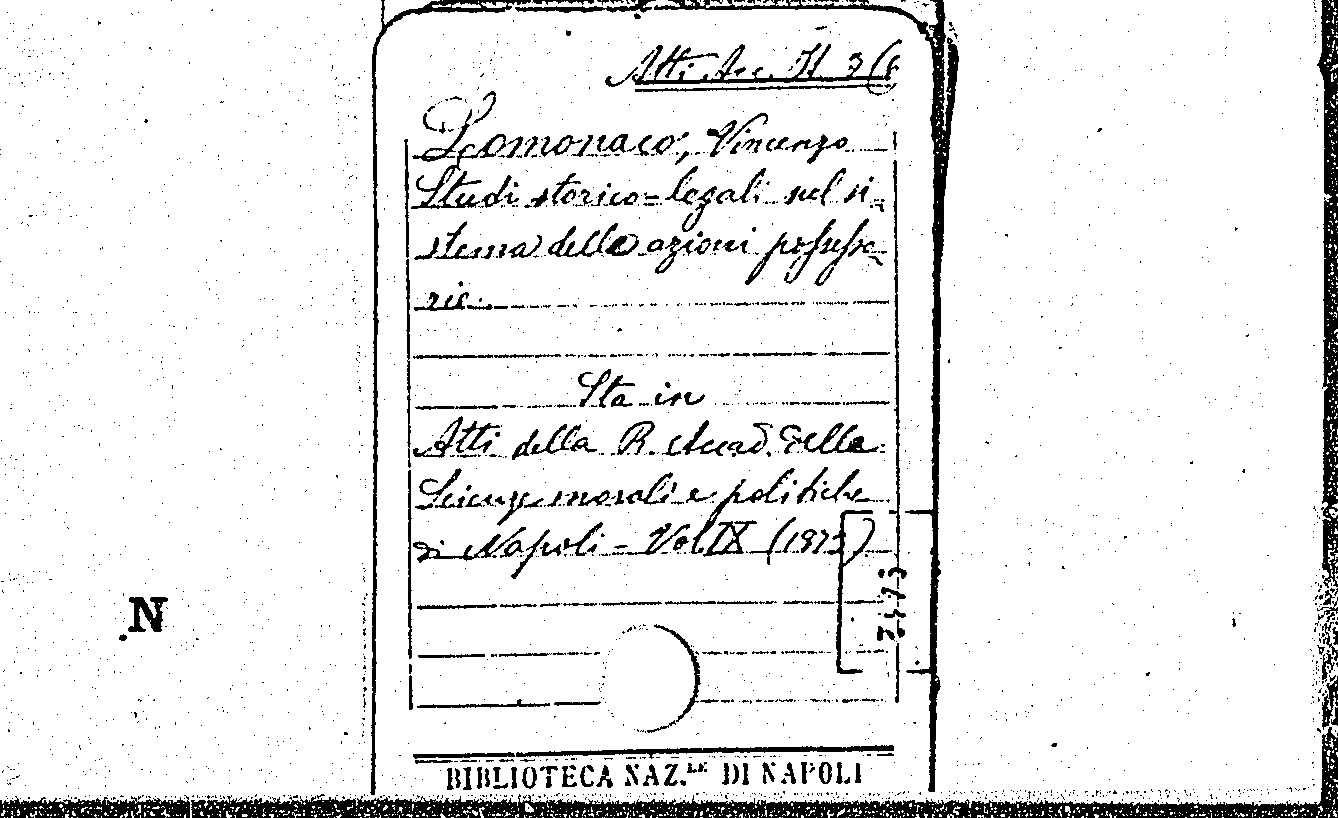 Atti Acc. II 3(6
Lomonaco, Vincenzo
Studi storico=legali sul si=
stema delle azioni possesso=
rie.
Sta in
Atti della R. Accad. delle
Scienze morali e politiche
di Napoli - Vol IX (1873)
N
BIBLIOTECA NAZ.LE DI NAPOLI